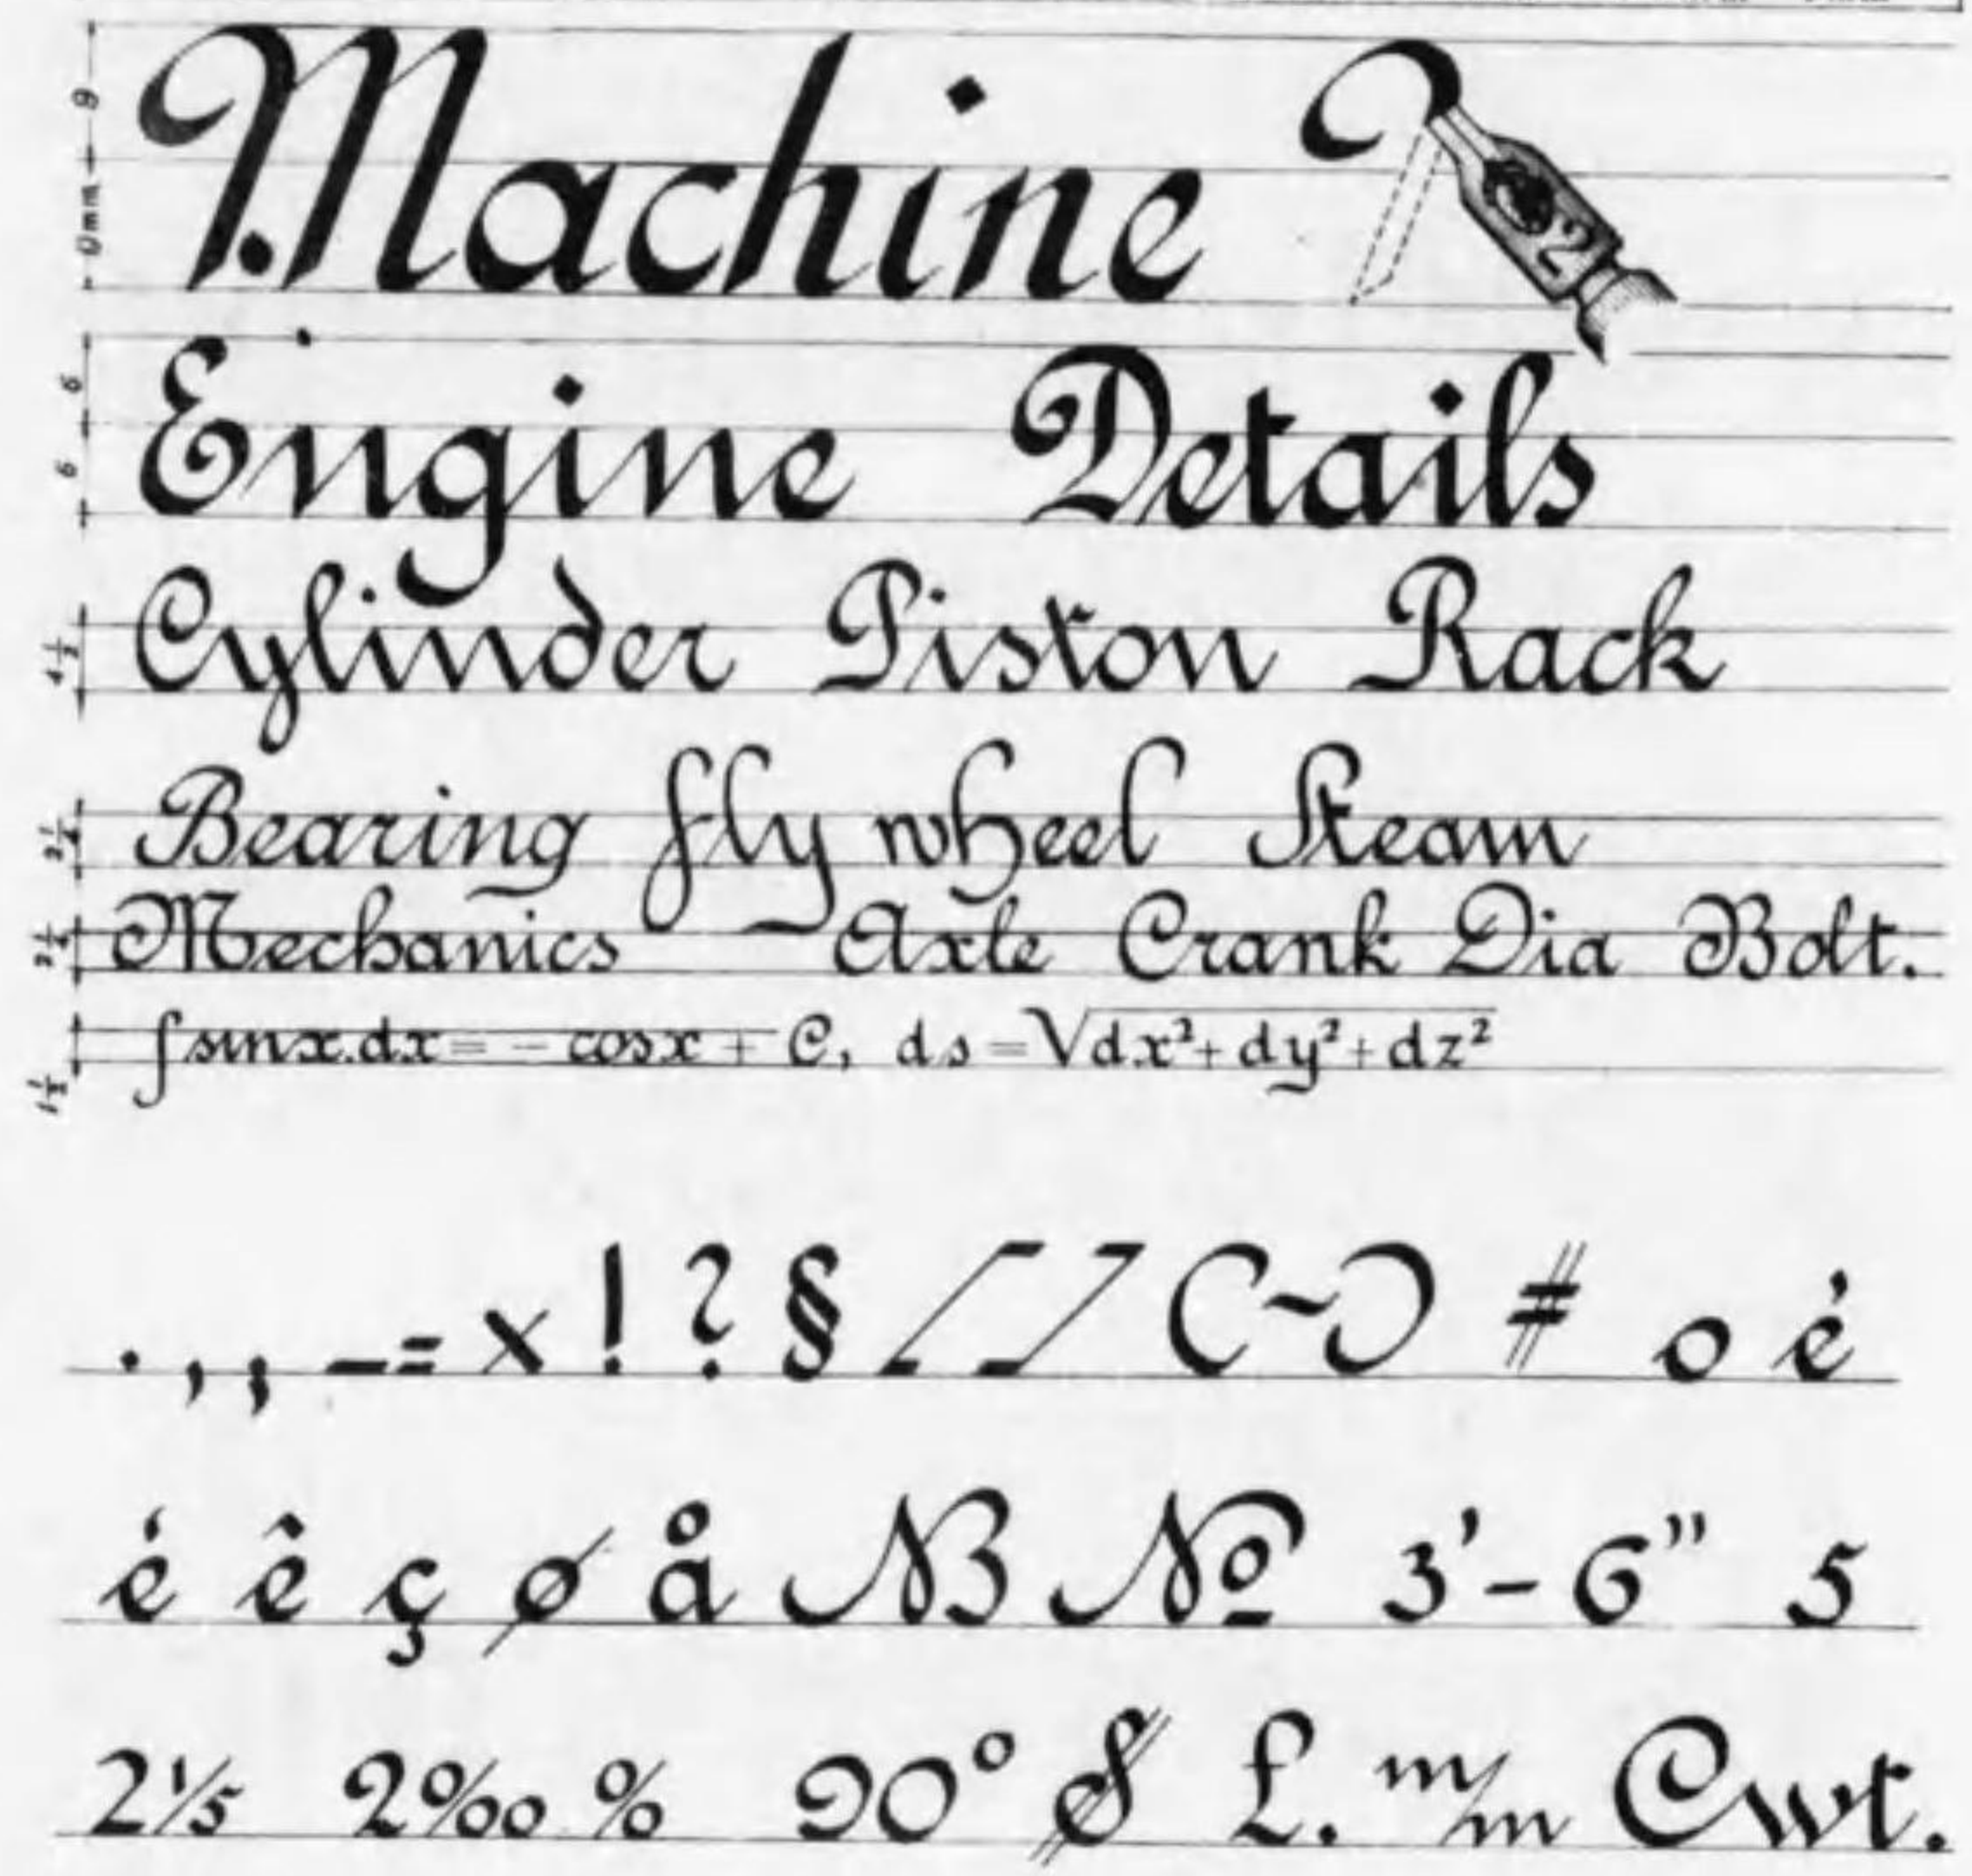 Machine 2
Engine Details
Cylinder Piston Rack
Bearing fly wheel Steam
Mechanics Axle Crank Dia Bolt.
∫sinx.dx = - cosx + C, ds = √dx²+dy²+dz²
. , ; - = x ! ? § [ ] ( ~ ) # o é
é ê ç ø å NB Nº 3'-6" 5
2⅕ 2‰ % 90° $ £. m/m Cwt.